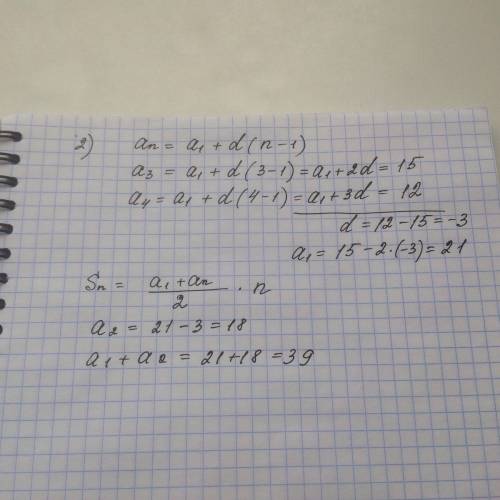 2) an = a1 + d(n-1)
a3 = a1 + d(3-1) = a1 + 2d = 15
a4 = a1 + d(4-1) = a1 + 3d = 12
d = 12 - 15 = -3
a1 = 15 - 2·(-3) = 21
Sn = (a1 + an)/2 · n
a2 = 21 - 3 = 18
a1 + a2 = 21 + 18 = 39